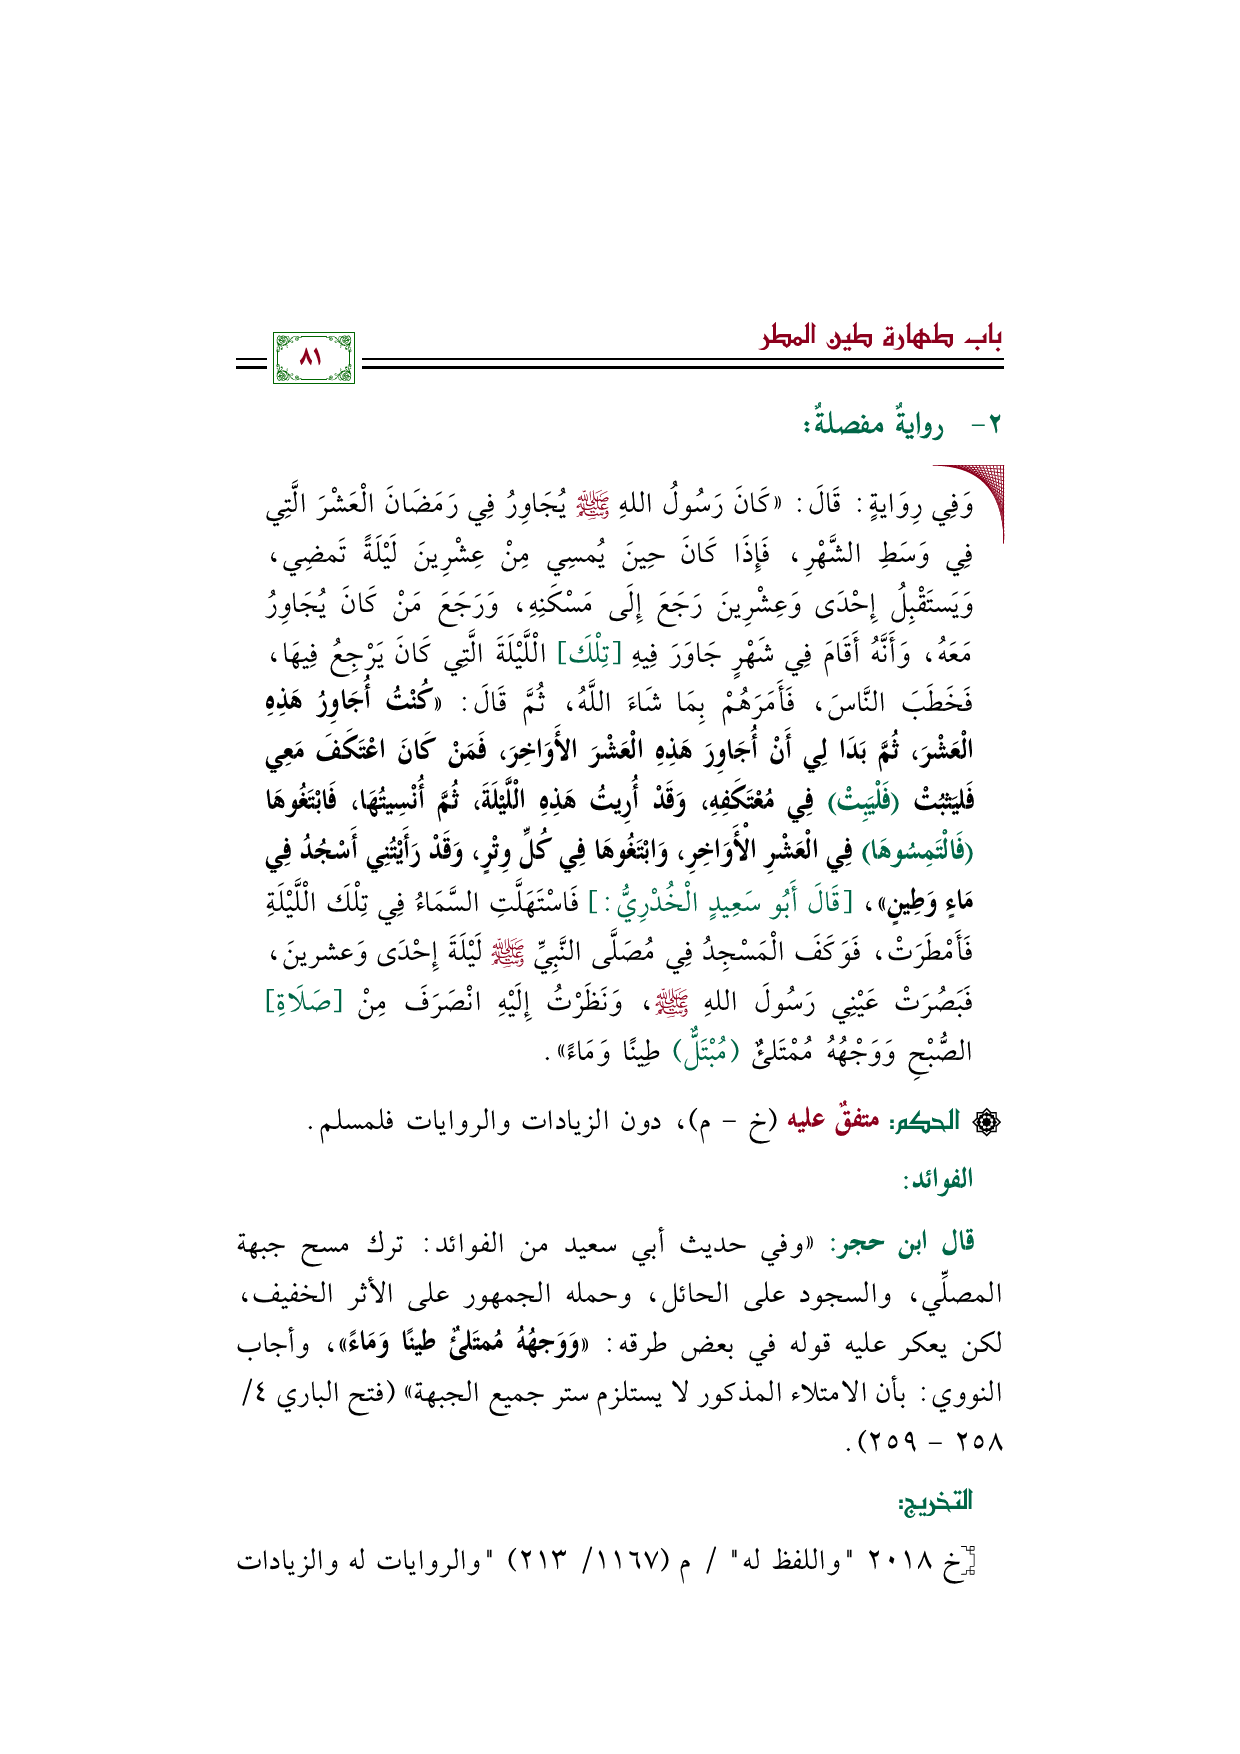 باب طهارة طين المطر
٨١
٢- روايةٌ مفصلةٌ:
وَفِي رِوَايةٍ: قَالَ: «كَانَ رَسُولُ اللهِ ﷺ يُجَاوِرُ فِي رَمَضَانَ الْعَشْرَ الَّتِي
فِي وَسَطِ الشَّهْرِ، فَإِذَا كَانَ حِينَ يُمسِي مِنْ عِشْرِينَ لَيْلَةً تَمضِي،
وَيَستَقْبِلُ إِحْدَى وَعِشْرِينَ رَجَعَ إِلَى مَسْكَنِهِ، وَرَجَعَ مَنْ كَانَ يُجَاوِرُ
مَعَهُ، وَأَنَّهُ أَقَامَ فِي شَهْرٍ جَاوَرَ فِيهِ [تِلْكَ] الْلَّيْلَةَ الَّتِي كَانَ يَرْجِعُ فِيهَا،
فَخَطَبَ النَّاسَ، فَأَمَرَهُمْ بِمَا شَاءَ اللَّهُ، ثُمَّ قَالَ: «كُنْتُ أُجَاوِرُ هَذِهِ
الْعَشْرَ، ثُمَّ بَدَا لِي أَنْ أُجَاوِرَ هَذِهِ الْعَشْرَ الأَوَاخِرَ، فَمَنْ كَانَ اعْتَكَفَ مَعِي
فَليَثبُتْ (فَلْيَبِتْ) فِي مُعْتَكَفِهِ، وَقَدْ أُرِيتُ هَذِهِ الْلَّيْلَةَ، ثُمَّ أُنْسِيتُهَا، فَابْتَغُوهَا
(فَالْتَمِسُوهَا) فِي الْعَشْرِ الْأَوَاخِرِ، وَابْتَغُوهَا فِي كُلِّ وِتْرٍ، وَقَدْ رَأَيْتُنِي أَسْجُدُ فِي
مَاءٍ وَطِينٍ»، [قَالَ أَبُو سَعِيدٍ الْخُدْرِيُّ:] فَاسْتَهَلَّتِ السَّمَاءُ فِي تِلْكَ الْلَّيْلَةِ
فَأَمْطَرَتْ، فَوَكَفَ الْمَسْجِدُ فِي مُصَلَّى النَّبِيِّ ﷺ لَيْلَةَ إِحْدَى وَعشرينَ،
فَبَصُرَتْ عَيْنِي رَسُولَ اللهِ ﷺ، وَنَظَرْتُ إِلَيْهِ انْصَرَفَ مِنْ [صَلَاةِ]
الصُّبْحِ وَوَجْهُهُ مُمْتَلئٌ (مُبْتَلٌّ) طِينًا وَمَاءً».
الحكم: متفقٌ عليه (خ - م)، دون الزيادات والروايات فلمسلم.
الفوائد:
قال ابن حجر: «وفي حديث أبي سعيد من الفوائد: ترك مسح جبهة
المصلِّي، والسجود على الحائل، وحمله الجمهور على الأثر الخفيف،
لكن يعكر عليه قوله في بعض طرقه: «وَوَجهُهُ مُمتَلئٌ طينًا وَمَاءً»، وأجاب
النووي: بأن الامتلاء المذكور لا يستلزم ستر جميع الجبهة» (فتح الباري ٤/
٢٥٨ - ٢٥٩).
التخريج:
[خ ٢٠١٨ "واللفظ له" / م (١١٦٧/ ٢١٣) "والروايات له والزيادات